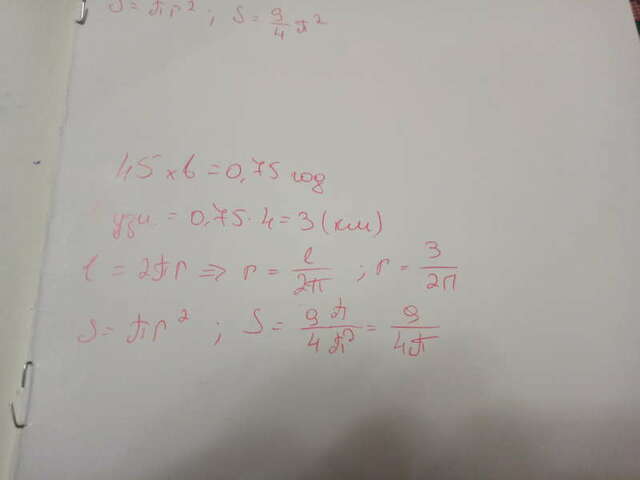 S = πr²; S = 9/4 π²
45 хв = 0,75 год
= 0,75 · 4 = 3 (км)
l = 2πr ⇒ r = l/2π ; r = 3/2π
S = πr² ; S = 9π/4π² = 9/4π